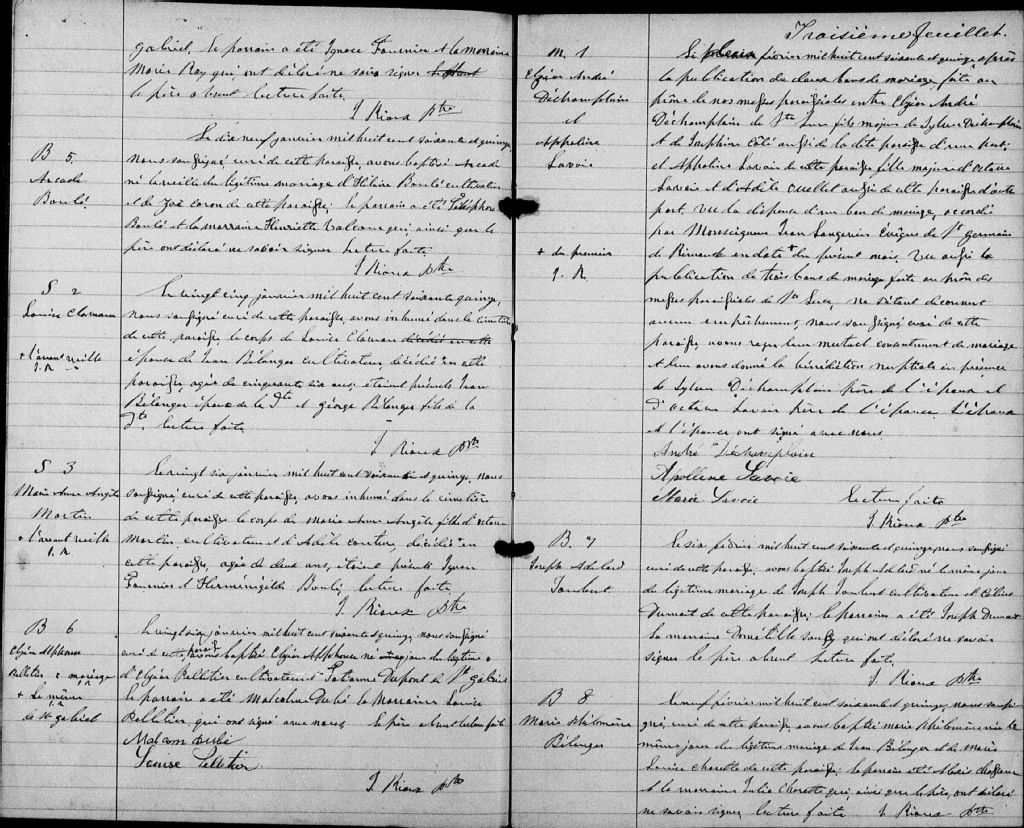 gabriel, Le parrain a été Ignace Fournier et la marraine
Marie Roy qui ont déclaré ne savoir signer
le père absent lecture faite.
J Rioux ptre
B 5.
Arcade
Boulé
Le dix neuf janvier mil huit cent soixante et quinze,
nous soussigné curé de cette paroisse, avons baptisé Arcade
né la veille du légitime mariage d'Hilaire Boulé cultivateur
et de Zoé Caron de cette paroisse; le parrain a été Télésphore
Boulé et la marraine Henriette qui ainsi que le
père ont déclaré ne savoir signer lecture faite.
J Rioux ptre
S 2
Louise
+ l'avant veille
J. R
Le vingt cinq janvier mil huit cent soixante quinze,
nous soussigné curé de cette paroisse, avons inhumé dans le cimetière
de cette paroisse le corps de Louise décédée en cette
épouse de Jean Bélanger cultivateur, décédée + en cette
paroisse, agée de cinquante six ans; étaient présents Jean
Bélanger époux de la Dte et George Bélanger fils de la
Dte. lecture faite.
J Rioux ptre
S 3
Marie Anne Angèle
Martin
+ l'avant veille
J. R
Le vingt six janvier mil huit cent soixante et quinze, nous
soussigné curé de cette paroisse, avons inhumé dans le cimetière
de cette paroisse le corps de Marie Anne Angèle fille d'Octave
Martin, cultivateur et d'Adèle décédée + en
cette paroisse, agée de deux ans, étaient présents Ignace
Fournier et Herménégilde Boulé, lecture faite.
J Rioux ptre
B 6
Elzéar Alphonse
Pelletier mariage
J. R
+ Le même
J. R
de St gabriel
Le vingt six janvier mil huit cent soixante et quinze, nous soussigné
curé de cette paroisse avons baptisé Elzéar Alphonse né jour du légitime
d'Elzéar Pelletier cultivateur et Dupont de St gabriel
le parrain a été Malcolm Dubé la Marraine Louise
Pelletier, qui ont signé avec nous. Le père absent lecture faite
Malcom Dubé
Louise Pelletier.
J. Rioux ptre
Troisième feuillet.
M. 1
Elzéar André
Déchamplain
et
Appoline
Savoie
+ du premier
J. R
Le février mil huit cent soixante et quinze, après
la publication de deux bans de mariage faite au
prône de nos messes paroissiales entre Elzéar André
Déchamplain de Ste Luce fils majeur de Sylvain Déchamplain
et de Josephine Côté aussi de la dite paroisse d'une part;
et Appoline Savoie de cette paroisse fille majeure d'Octave
Savoie et d'Adèle Ouellet aussi de cette paroisse d'autre
part, vu la dispense d'un ban de mariage, accordé
par Monseigneur Jean Langevin Evêque de St germain
de Rimouski en date + du présent mois, vu aussi la
publication de trois bans de mariage faite au prône des
messes paroissiales de Ste Luce, ne s'étant découvert
aucun empêchement, nous soussigné curé de cette
paroisse, avons reçu leur mutuel consentement de mariage
et leur avons donné la bénédiction nuptiale en présence
de Sylvain Déchamplain père de l'époux et
d'Octave Savoie père de l'épouse. L'époux
et l'épouse ont signé avec nous.
André Déchamplain
Apolline Savoie
Marie Savoie lecture faite
J Rioux ptre
B. 7
Joseph Adélard
Joubert
Le six février mil huit cent soixante et quinze, nous soussigné
curé de cette paroisse, avons baptisé Joseph Adélard né le même jour
du légitime mariage de Joseph Joubert cultivateur et Célina
Dumont de cette paroisse; le parrain a été Joseph Dumont
la marraine Domitille qui ont déclaré ne savoir
signer le père absent lecture faite.
J. Rioux ptre
B 8
Marie Philomène
Bélanger
Le neuf février mil huit cent soixante et quinze, nous soussi-
gné, curé de cette paroisse, avons baptisé Marie Philomène née le
même jour du légitime mariage de Jean Bélanger et de Marie
Louise Charette de cette paroisse; le parrain a été Alexis
et la marraine Julie Charette qui, ainsi que le père, ont déclaré
ne savoir signer lecture faite J Rioux ptre